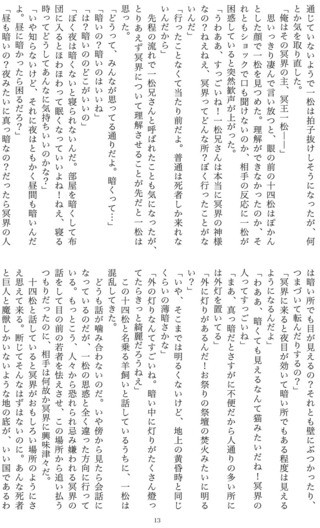 通じていないようで一松は拍子抜けしそうになったが、何
とか気を取り直した。
「俺はその冥界の主、冥王　一松――」
　思いっきり凄んで言い放つと、眼の前の十四松はぽかん
とした顔で一松を見つめた。理解ができなかったのか、そ
れともショックで口も聞けないのか、相手の反応に一松が
困惑していると突然歓声が上がった。
「うわああ、すっごいね！一松兄さんは本当に冥界の神様
なの？ねえねえ、冥界ってどんな所？ぼく行ったことがな
いんだ」
「行ったことなくて当たり前だよ。普通は死者しか来れな
いんだから」
　先程の流れで一松兄さんと呼ばれたことも気になったが、
とりあえず冥界について理解させることが先だと一松は
思った。
「どうって、みんなが思ってる通りだよ。暗くって…」
「暗いの？暗いのはいいね」
「は？暗いのどこがいいの」
「ぼく夜は暗くないと寝られないんだ。部屋を暗くして布
団に入るとほわほわって眠くなっていいよね！ねえ、寝る
時ってどうしてあんなに気持ちいいのかなぁ？」
「いや知らないけど、それに夜はともかく昼間も暗いんだ
よ。昼に暗かったら困るだろ？」
「昼も暗いの？夜みたいに真っ暗なの？だったら冥界の人
は暗い所でも目が見えるの？それとも壁にぶつかったり、
つまづいて転んだりするの？」
「冥界に来ると夜目が効いて暗い所でもある程度は見える
ようになるんだよ」
「わああ、暗くても見えるなんて猫みたいだね！冥界の
人ってすっごいね」
「まあ、真っ暗だとさすがに不便だから人通りの多い所に
は外灯を置いてる」
「外に灯りがあるんだ！お祭りの祭壇の焚火みたいに明る
い？」
「いや、そこまでは明るくないけど、地上の黄昏時と同じ
くらいの薄暗さかな」
「外の灯りなんてすごいね。暗い中に灯りがたくさん燈っ
てたらきっと綺麗だろうねえ」
　この十四松と名乗る羊飼いと話しているうちに、一松は
混乱してきた。
　どうも話が噛み合わないのだ。いや傍から見たら会話に
なっているのだが、一松の思惑と全く違った方向に行って
いる。もっとこう、人々から恐れられ忌み嫌われる冥界の
話をして目の前の若者を怯えさせ、この場所から追い払う
つもりだったのに、相手は何故か冥界に興味津々だ。
　十四松と話していると冥界がおもしろい場所のようにさ
え思えて来る。断じてそんなはずはないのに。あんな死者
と巨人と魔獣しかいないような地の底が、いい国であるわ
13